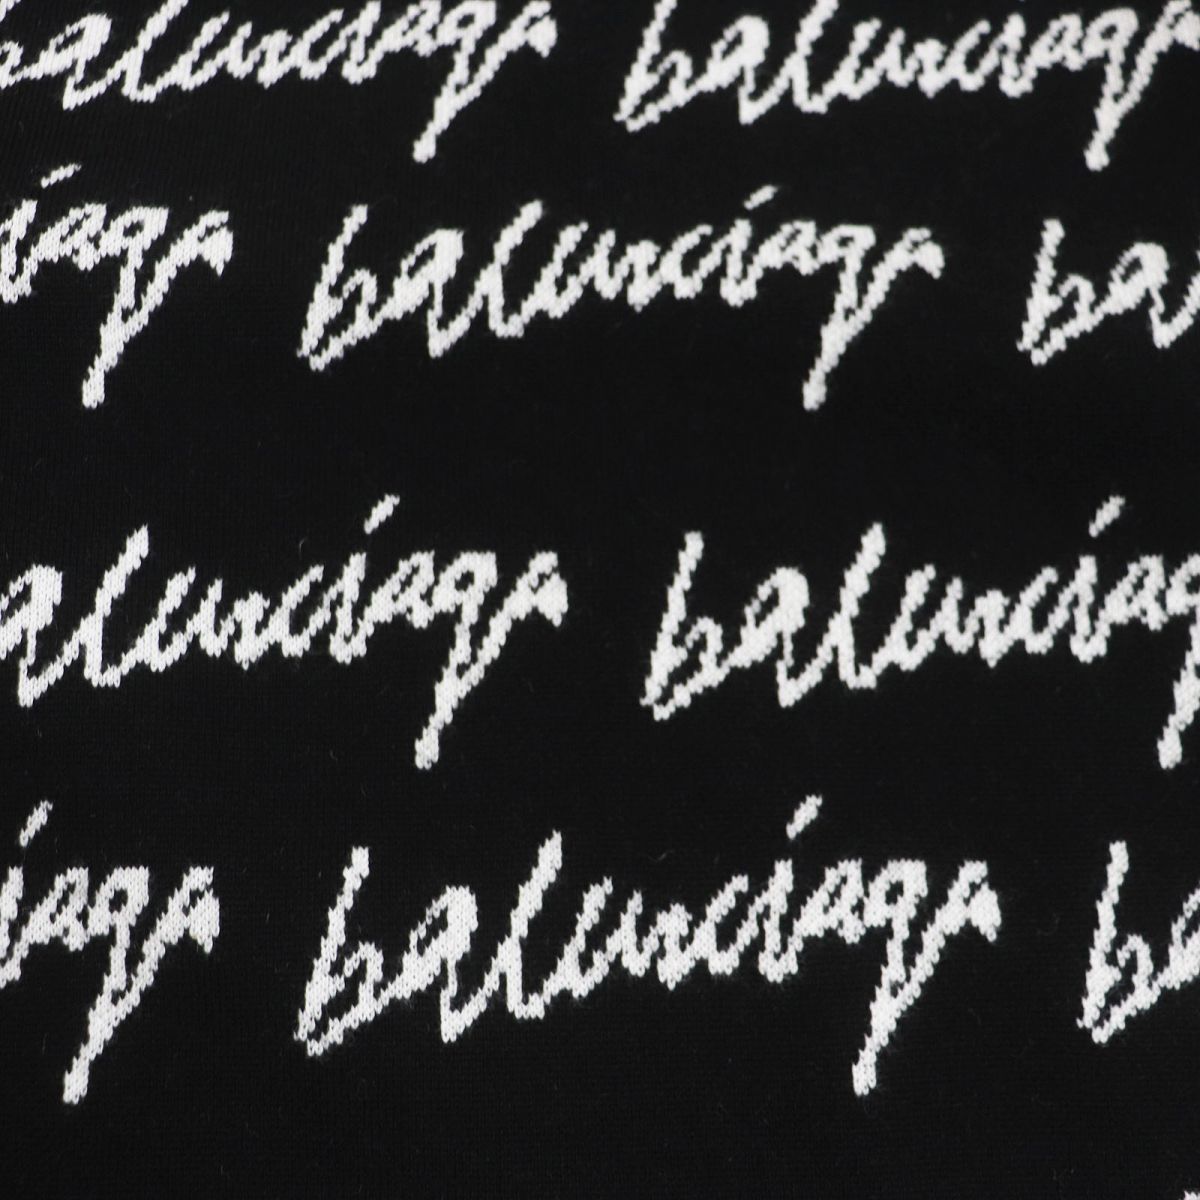 balenciaga balenciaga
iaga balenciaga ba
alenciaga balenciag
iaga balenciaga ba